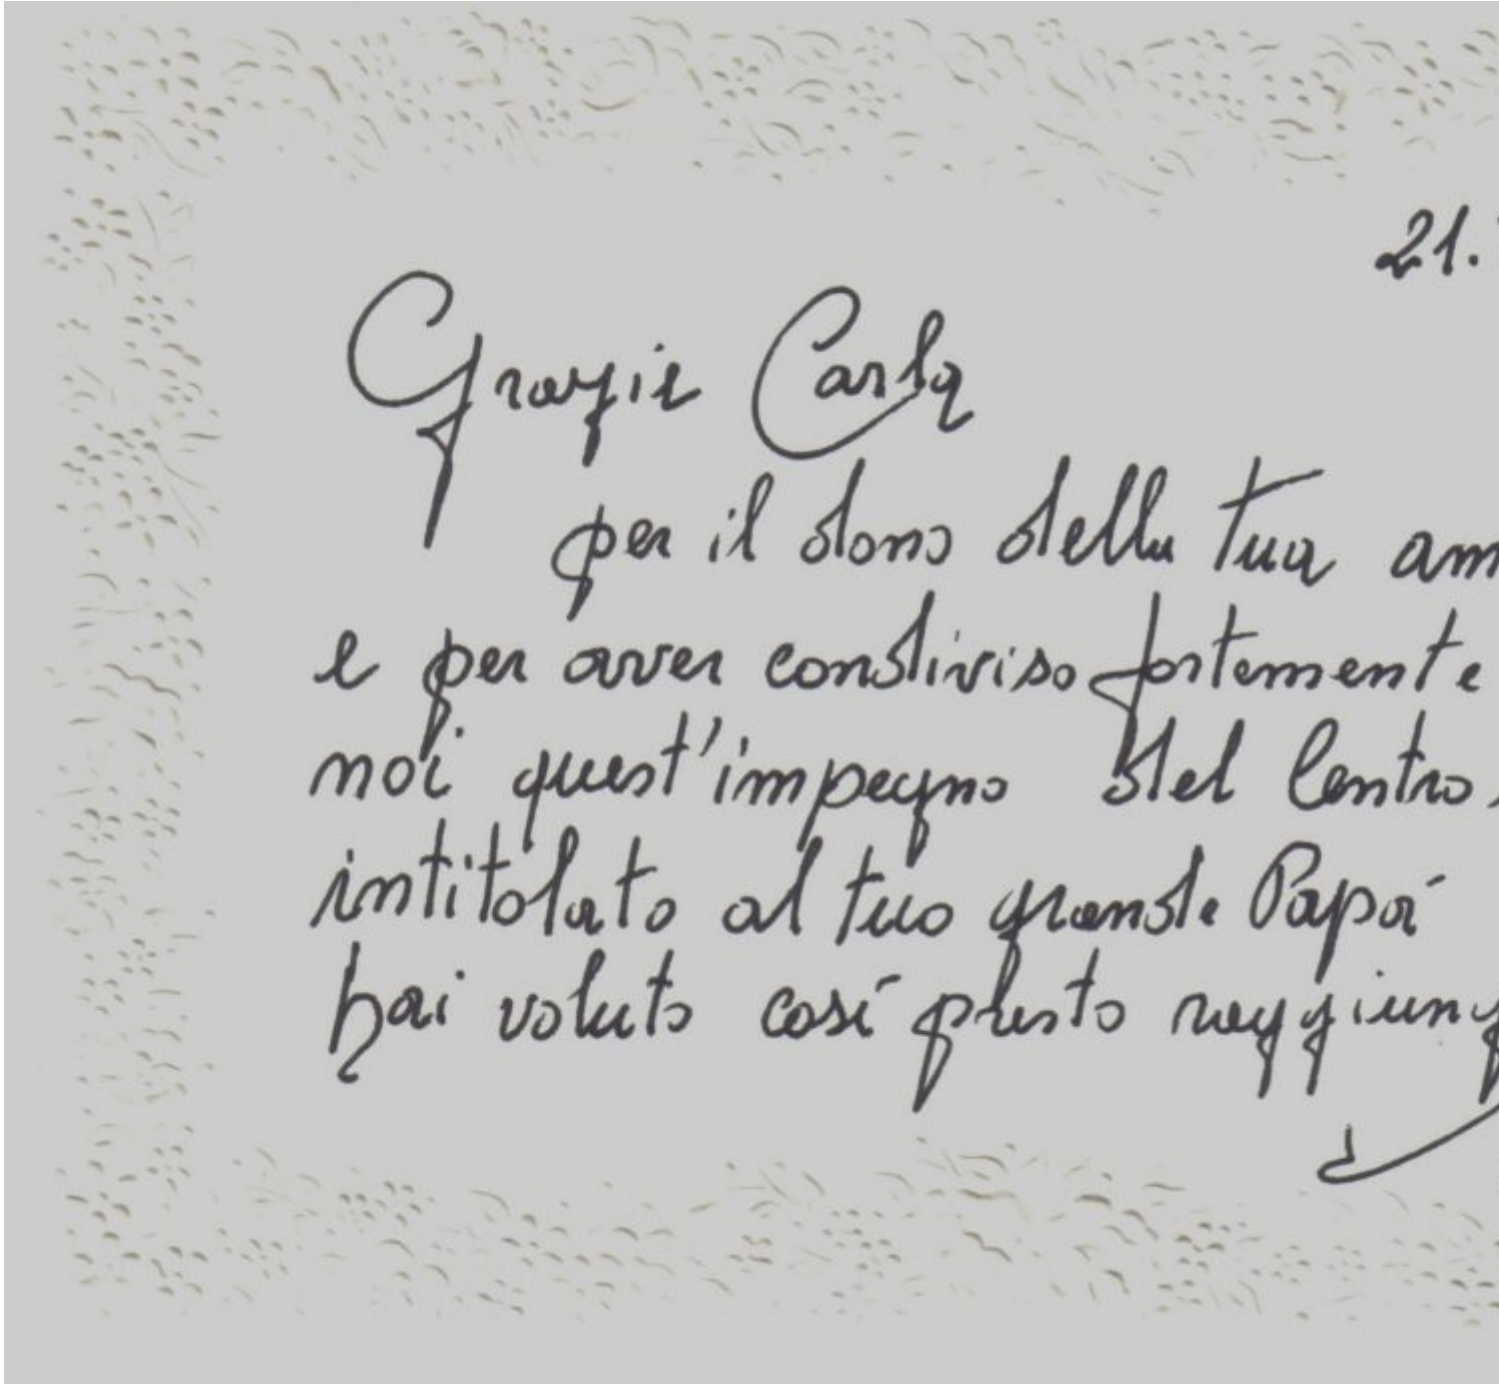 21.
Grazie Carla
per il dono della tua am
e per aver condiviso fortemente
noi quest'impegno del Centro
intitolato al tuo grande Papá
hai voluto cosí presto raggiung